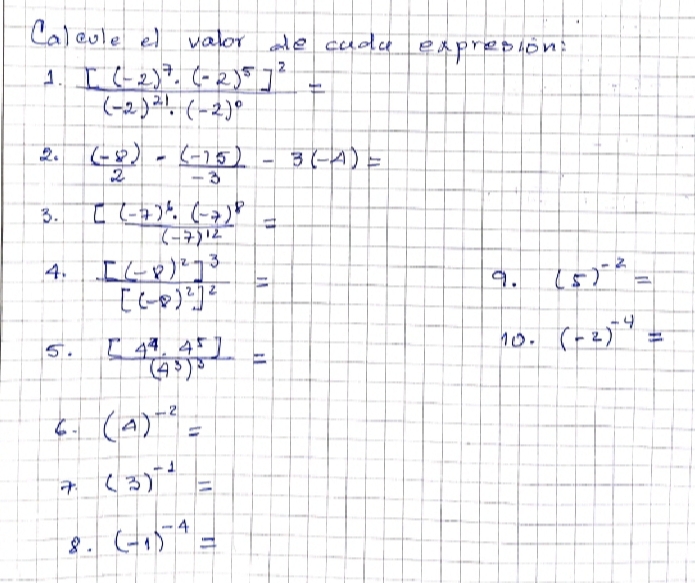 Calcule el valor de cada expresión:
1. [(-2)⁷ · (-2)⁵]² / (-2)²¹ · (-2)⁰ =
2. (-8)/2 - (-15)/-3 - 3(-4) =
3. [(-7)⁶ · (-7)⁸ / (-7)¹² =
4. [(-8)²]³ / [(-8)²]² =
5. [4⁴ · 4⁵] / (4³)³ =
6. (4)⁻² =
7. (3)⁻¹ =
8. (-1)⁻⁴ =
9. (5)⁻² =
10. (-2)⁻⁴ =